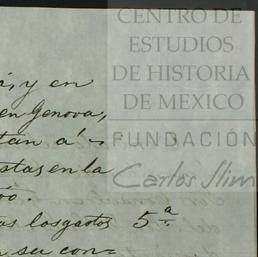 CENTRO DE
ESTUDIOS
DE HISTORIA
DE MEXICO
FUNDACIÓN
Carlos Slim
á, y en
en Genova,
tan a'-
stas en la
los gastos 5ª
su con=